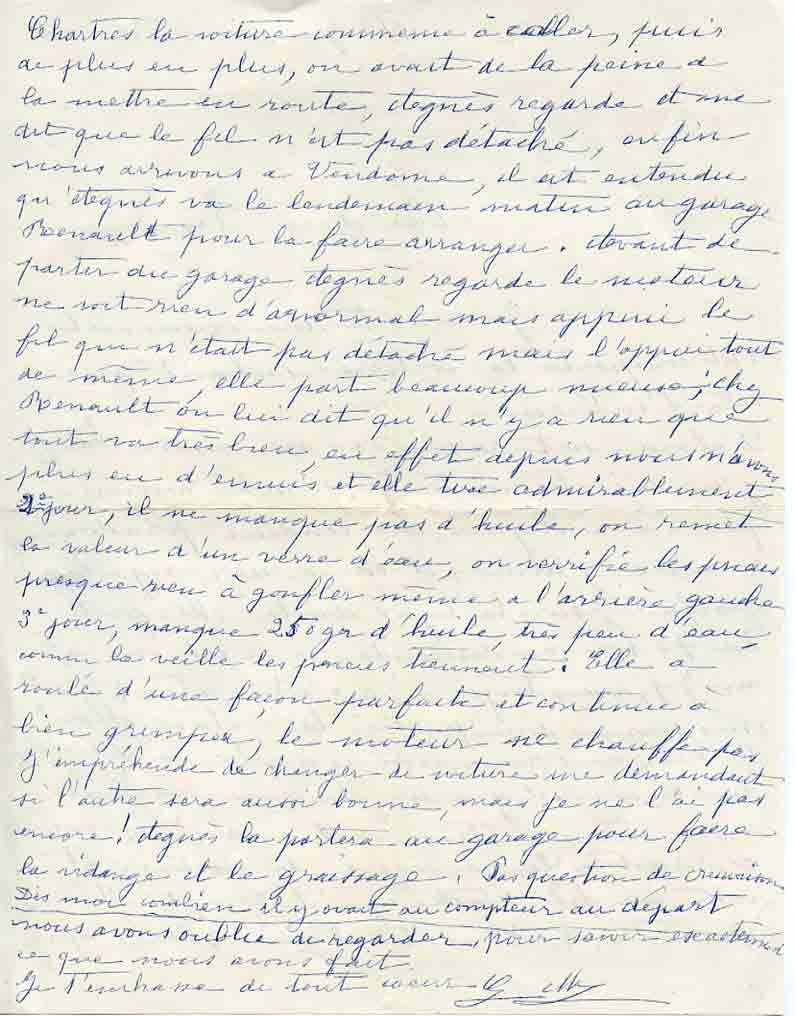 Chartres la voiture commence à caller, puis
de plus en plus, on avait de la peine a
la mettre en route, Agnès regarde et me
dit que le fil n'est pas détaché, enfin
nous arrivons a Vendome, il est entendu
qu'Agnès va le lendemain matin au garage
Renault pour la faire arranger. Avant de
partir du garage Agnès regarde le moteur
ne voit rien d'anormal mais appuie le
fil qui n'était pas détaché mais l'appui tout
de même, elle part beaucoup mieux; chez
Renault on lui dit qu'il n'y a rien que
tout va très bien, en effet depuis nous n'avons
plus eu d'ennuis et elle tire admirablement
2e jour, il ne manque pas d'huile, on remet
la valeur d'un verre d'eau, on verrifie les pneus
presque rien à gonfler même a l'arrière gauche
3e jour, manque 250 gr d'huile, très peu d'eau,
comme la veille les pneus tiennent. Elle a
roulé d'une façon parfaite et continue à
bien grimper, le moteur ne chauffe pas
J'empréhende de changer de voiture me demandant
si l'autre sera aussi bonne, mais je ne l'ai pas
encore! Agnès la portera au garage pour faire
la vidange et le graissage. Pas question de crevaison
Dis moi combien il y avait au compteur au départ
nous avons oublié de regarder, pour savoir exactement
ce que nous avons fait.
Je t'embrasse de tout coeur